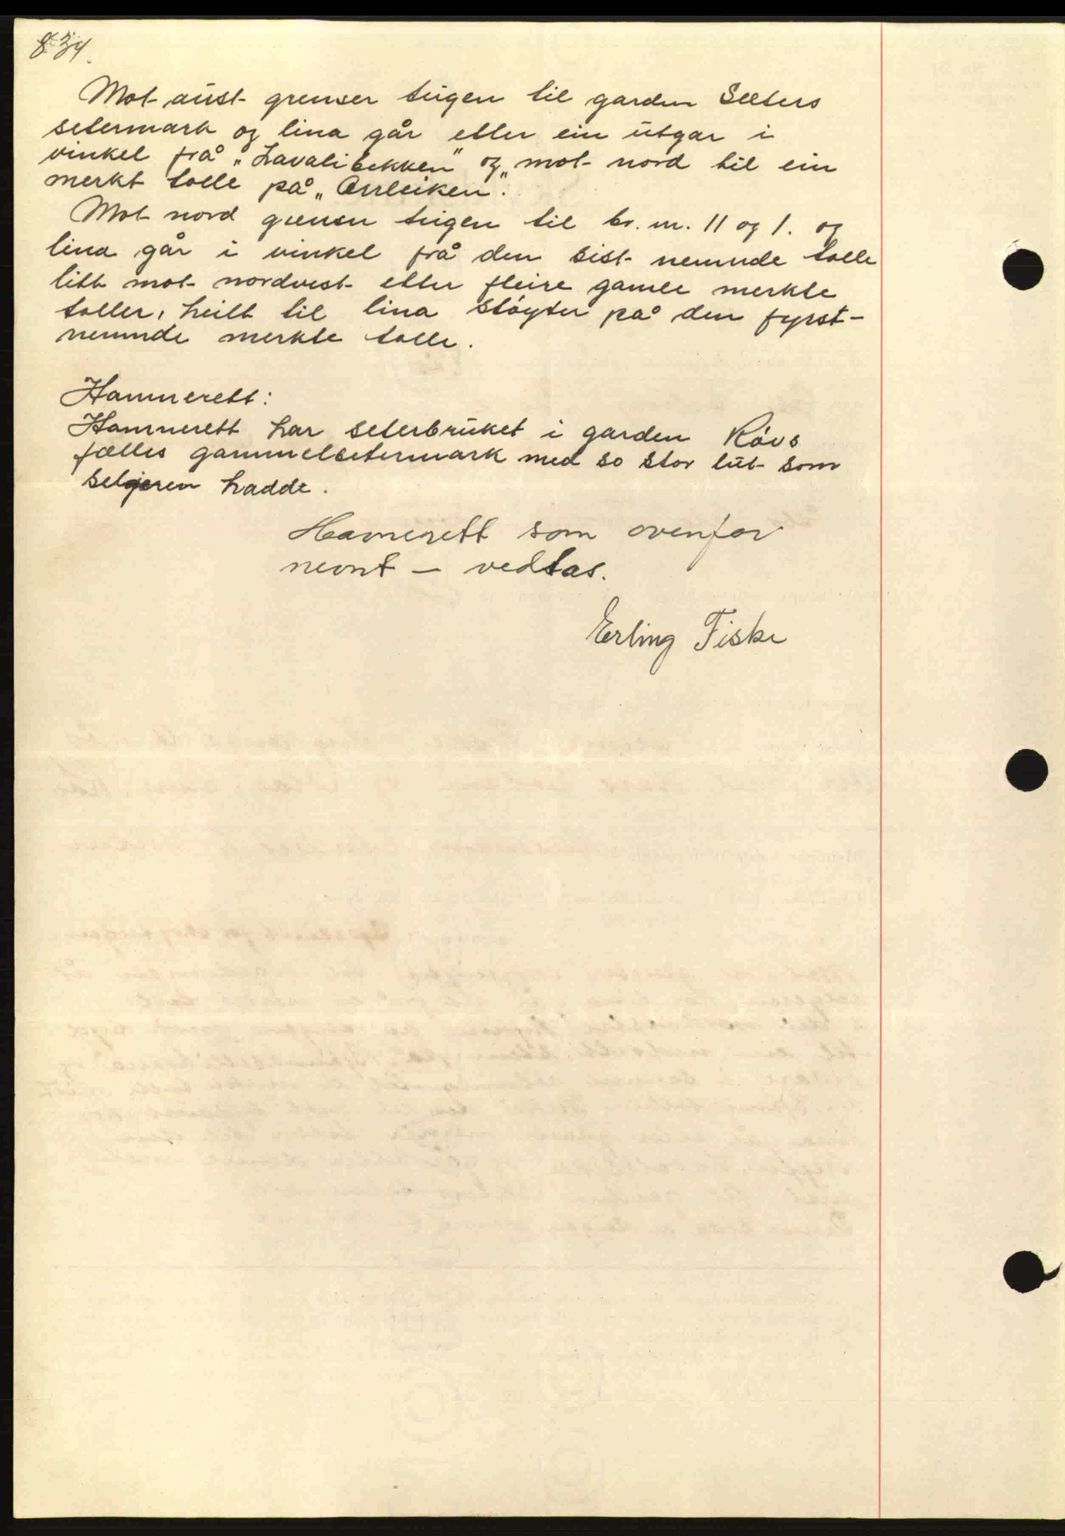 834.
Mot aust grenser teigen til garden Sæters
setermark og lina går etter ein utgar i
vinkel frå „Lavalibekken” og mot nord til ein
merkt tolle på „Orrleiken”.
Mot nord grenser teigen til br. nr. 11 og 1. og
lina går i vinkel frå den sist nemnde tolle
litt mot nordvest etter fleire gamle merkte
toller, heilt til lina støyter på den fyrst-
nemnde merkte tolle.
Hamnerett:
Hamnerett har seterbruket i garden Røvs
fælles gammelsetermark med so stor lut som
seljaren hadde.
Havnerett som ovenfor
nevnt — vedtas.
Erling Fiske